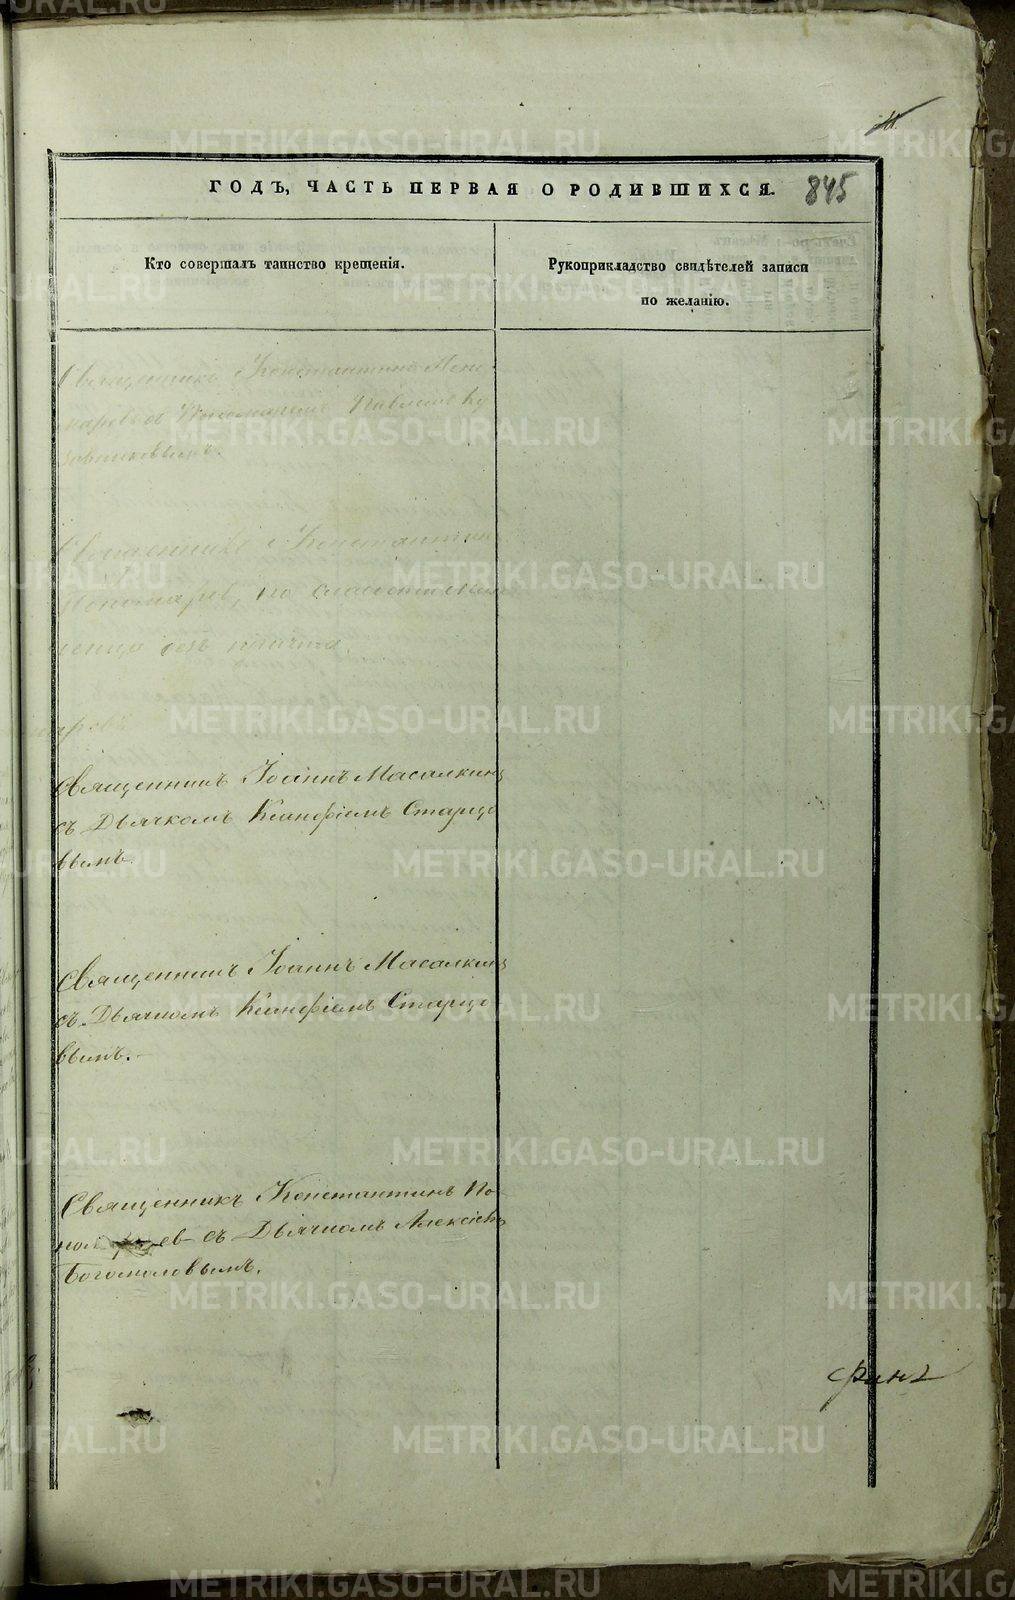 ГОДЪ, ЧАСТЬ ПЕРВАЯ О РОДИВШИХСЯ. 845
Кто совершалъ таинство крещенія.
Рукоприкладство свидѣтелей записи
по желанію.
Священникъ Константинъ Поно
маревъ съ Пономаремъ Павломъ Ку
Священникъ Константинъ
Пономаревъ, по слабости мла
денца безъ причта.
Священникъ Іоаннъ Масалкинъ
съ Дьячкомъ Ксинфіемъ Старцо
вымъ.
Священникъ Іоаннъ Масалкинъ
съ Дьячкомъ Ксинфіемъ Старцо
вымъ.
Священникъ Константинъ По
номаревъ съ Дьячкомъ Алексѣемъ
Богомоловымъ.
METRIKI.GASO-URAL.RU